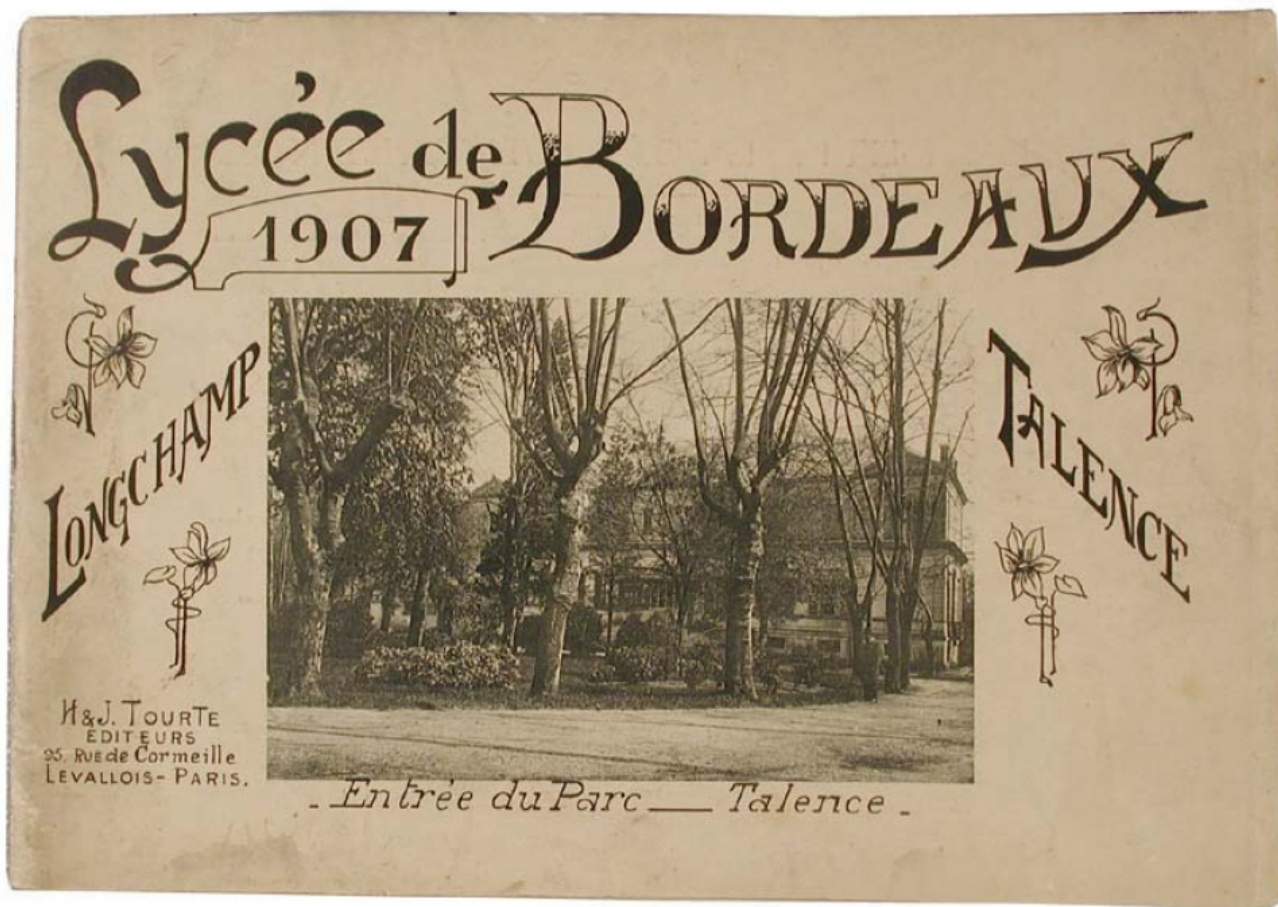 Lycée de BORDEAUX
1907
LONGCHAMP
TALENCE
H & J. TOURTE
EDITEURS
95, RUE de Cormeille
LEVALLOIS - PARIS.
- Entrée du Parc — Talence -